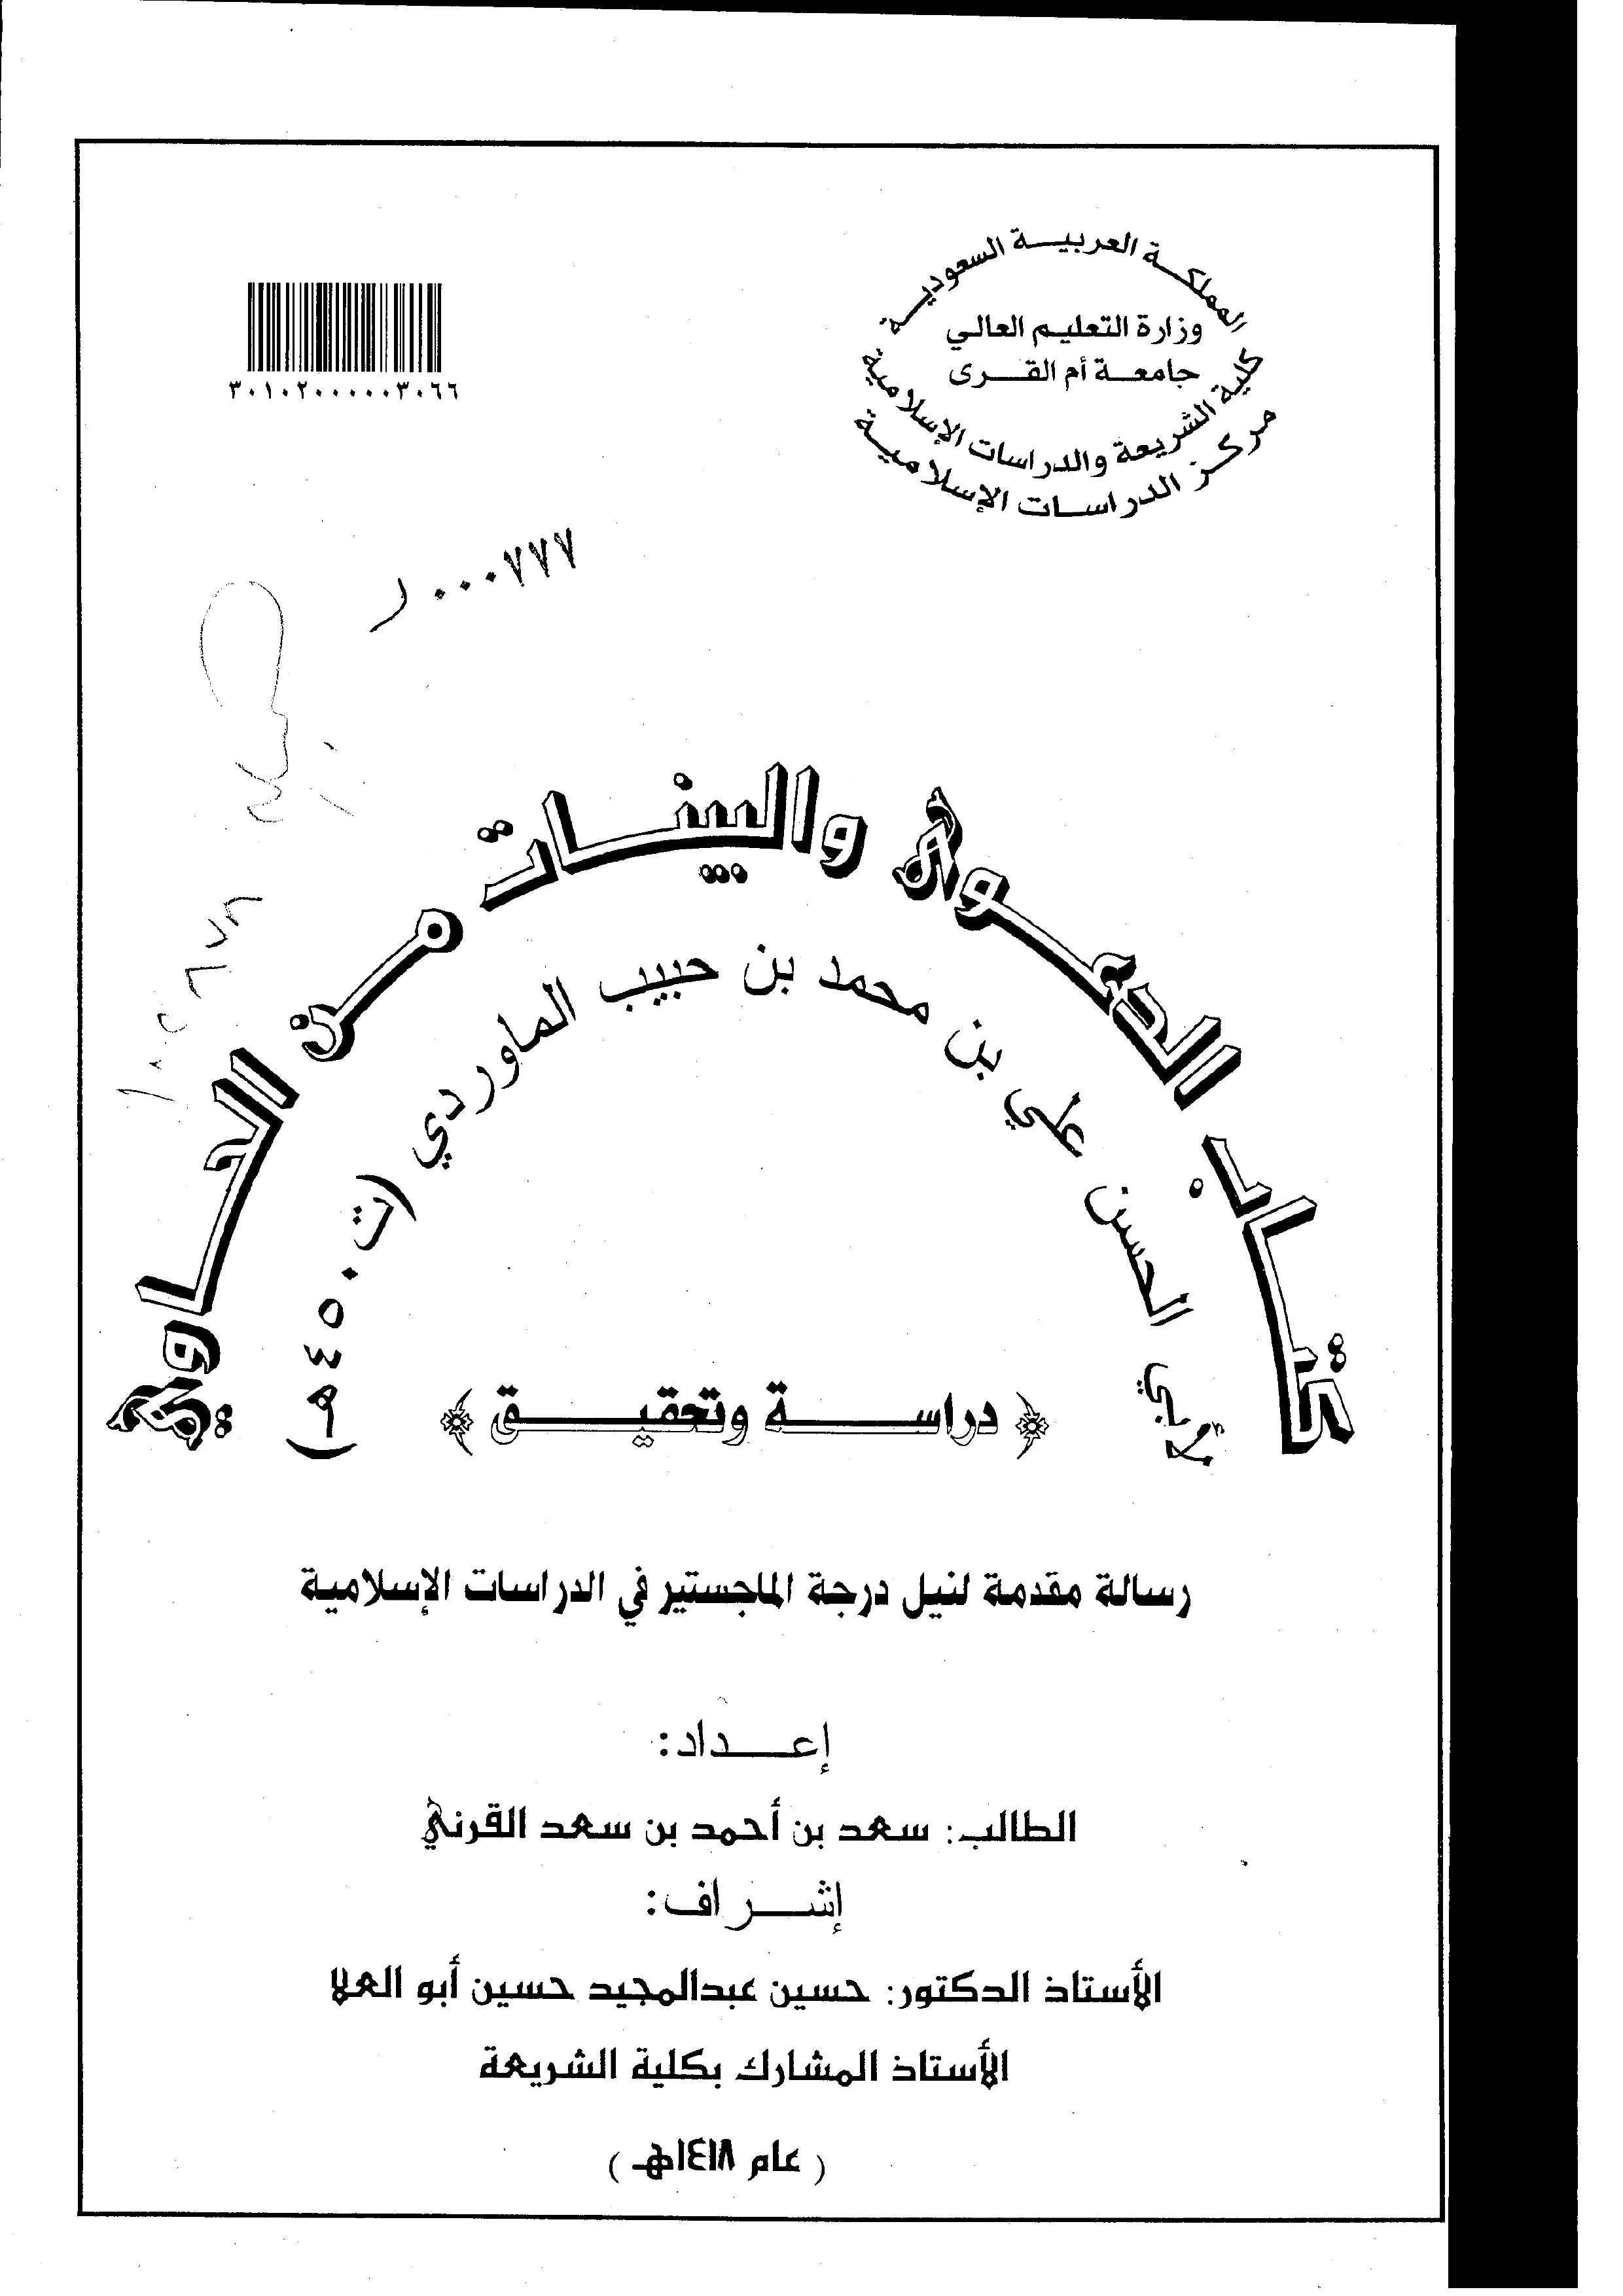 المملكة العربية السعودية
وزارة التعليم العالي
جامعة أم القرى
كلية الشريعة والدراسات الإسلامية
مركز الدراسات الإسلامية
٣٠١٠٢٠٠٠٠٠٣٠٦٦
ر ٠٠٠٧٧٧
كتاب الدعوى والبينات من الحاوي
لأبي الحسن علي بن محمد بن حبيب الماوردي (ت ٤٥٠هـ)
﴿ دراسة وتحقيق ﴾
رسالة مقدمة لنيل درجة الماجستير في الدراسات الإسلامية
إعداد:
الطالب: سعد بن أحمد بن سعد القرني
إشراف:
الأستاذ الدكتور: حسين عبدالمجيد حسين أبو العلا
الأستاذ المشارك بكلية الشريعة
( عام ١٤١٨هـ )